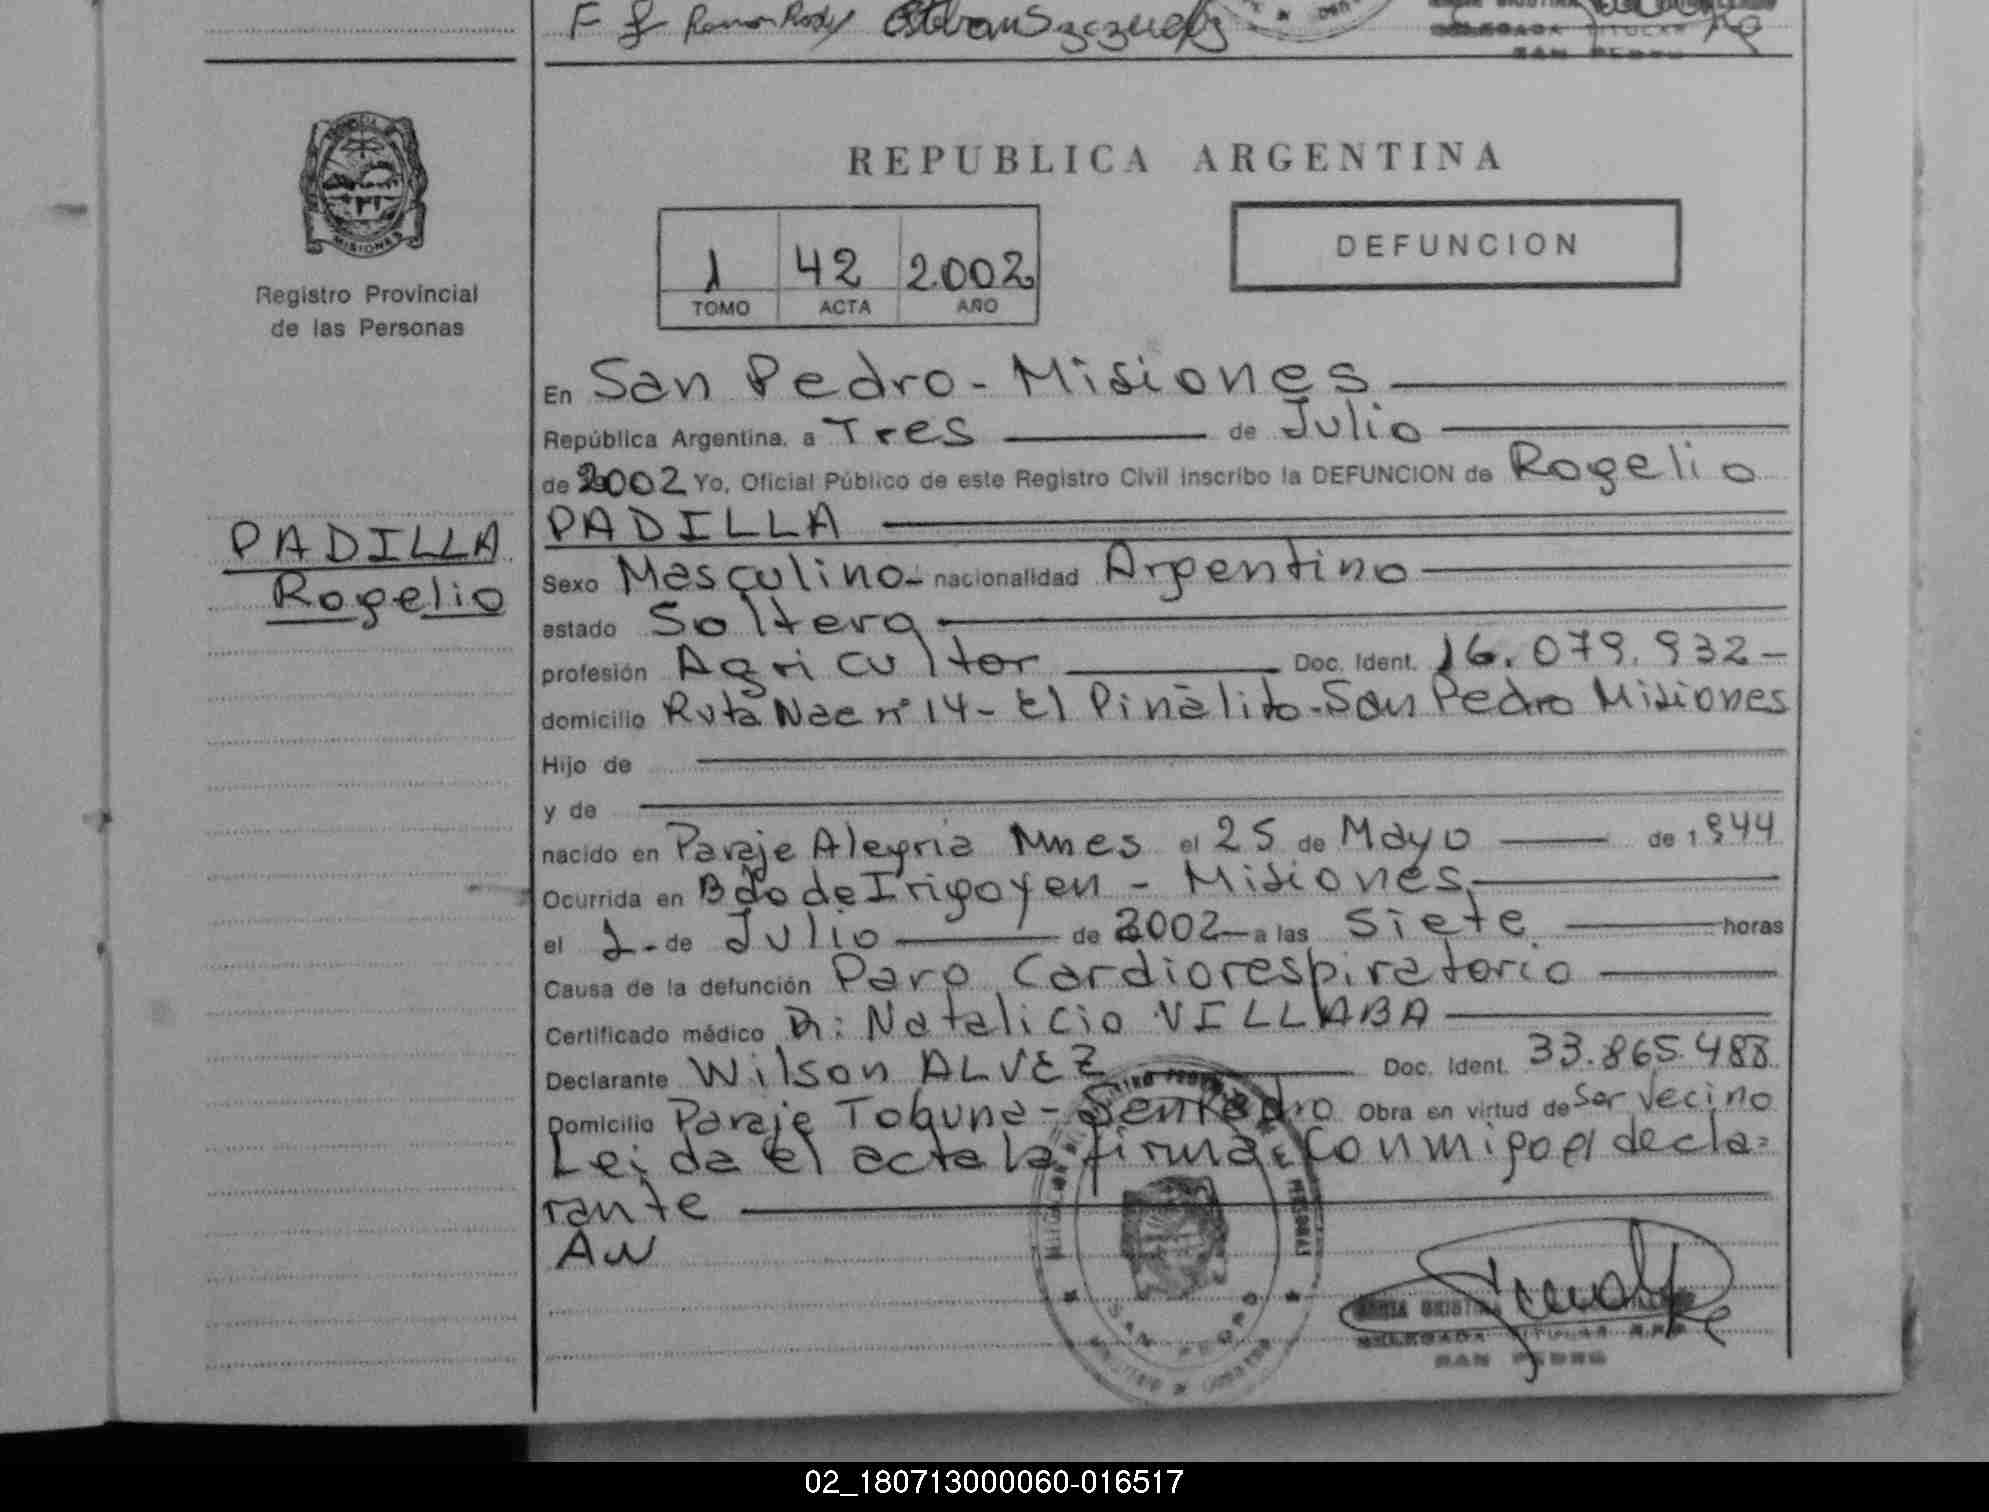 F f Ramon Rody Esteban
DELEGADA TITULAR
SAN PEDRO
MISIONES
Registro Provincial
de las Personas
REPUBLICA ARGENTINA
1 42 2.002
TOMO ACTA AÑO
DEFUNCION
En San Pedro - Misiones
República Argentina, a Tres de Julio
de 2002 Yo, Oficial Público de este Registro Civil inscribo la DEFUNCION de Rogelio
PADILLA
PADILLA
Rogelio
Sexo Masculino - nacionalidad Argentino
estado Soltero
profesión Agricultor Doc. Ident. 16.079.932 -
domicilio Ruta Nac nº 14 - El Pinalito - San Pedro Misiones
Hijo de
y de
nacido en Paraje Alegria Mnes el 25 de Mayo de 1944
Ocurrida en Bdo de Irigoyen - Misiones
el 1 - de Julio de 2002 a las Siete horas
Causa de la defunción Paro Cardiorespiratorio
Certificado médico Dr: Natalicio VILLABA
Declarante Wilson ALVEZ Doc. Ident. 33.865.488
Domicilio Paraje Tobuna - San Pedro Obra en virtud de Ser Vecino
Leida el acta la firma conmigo el decla=
rante
AW
SAN PEDRO
DELEGADA TITULAR R.P.P.
SAN PEDRO
02_180713000060-016517